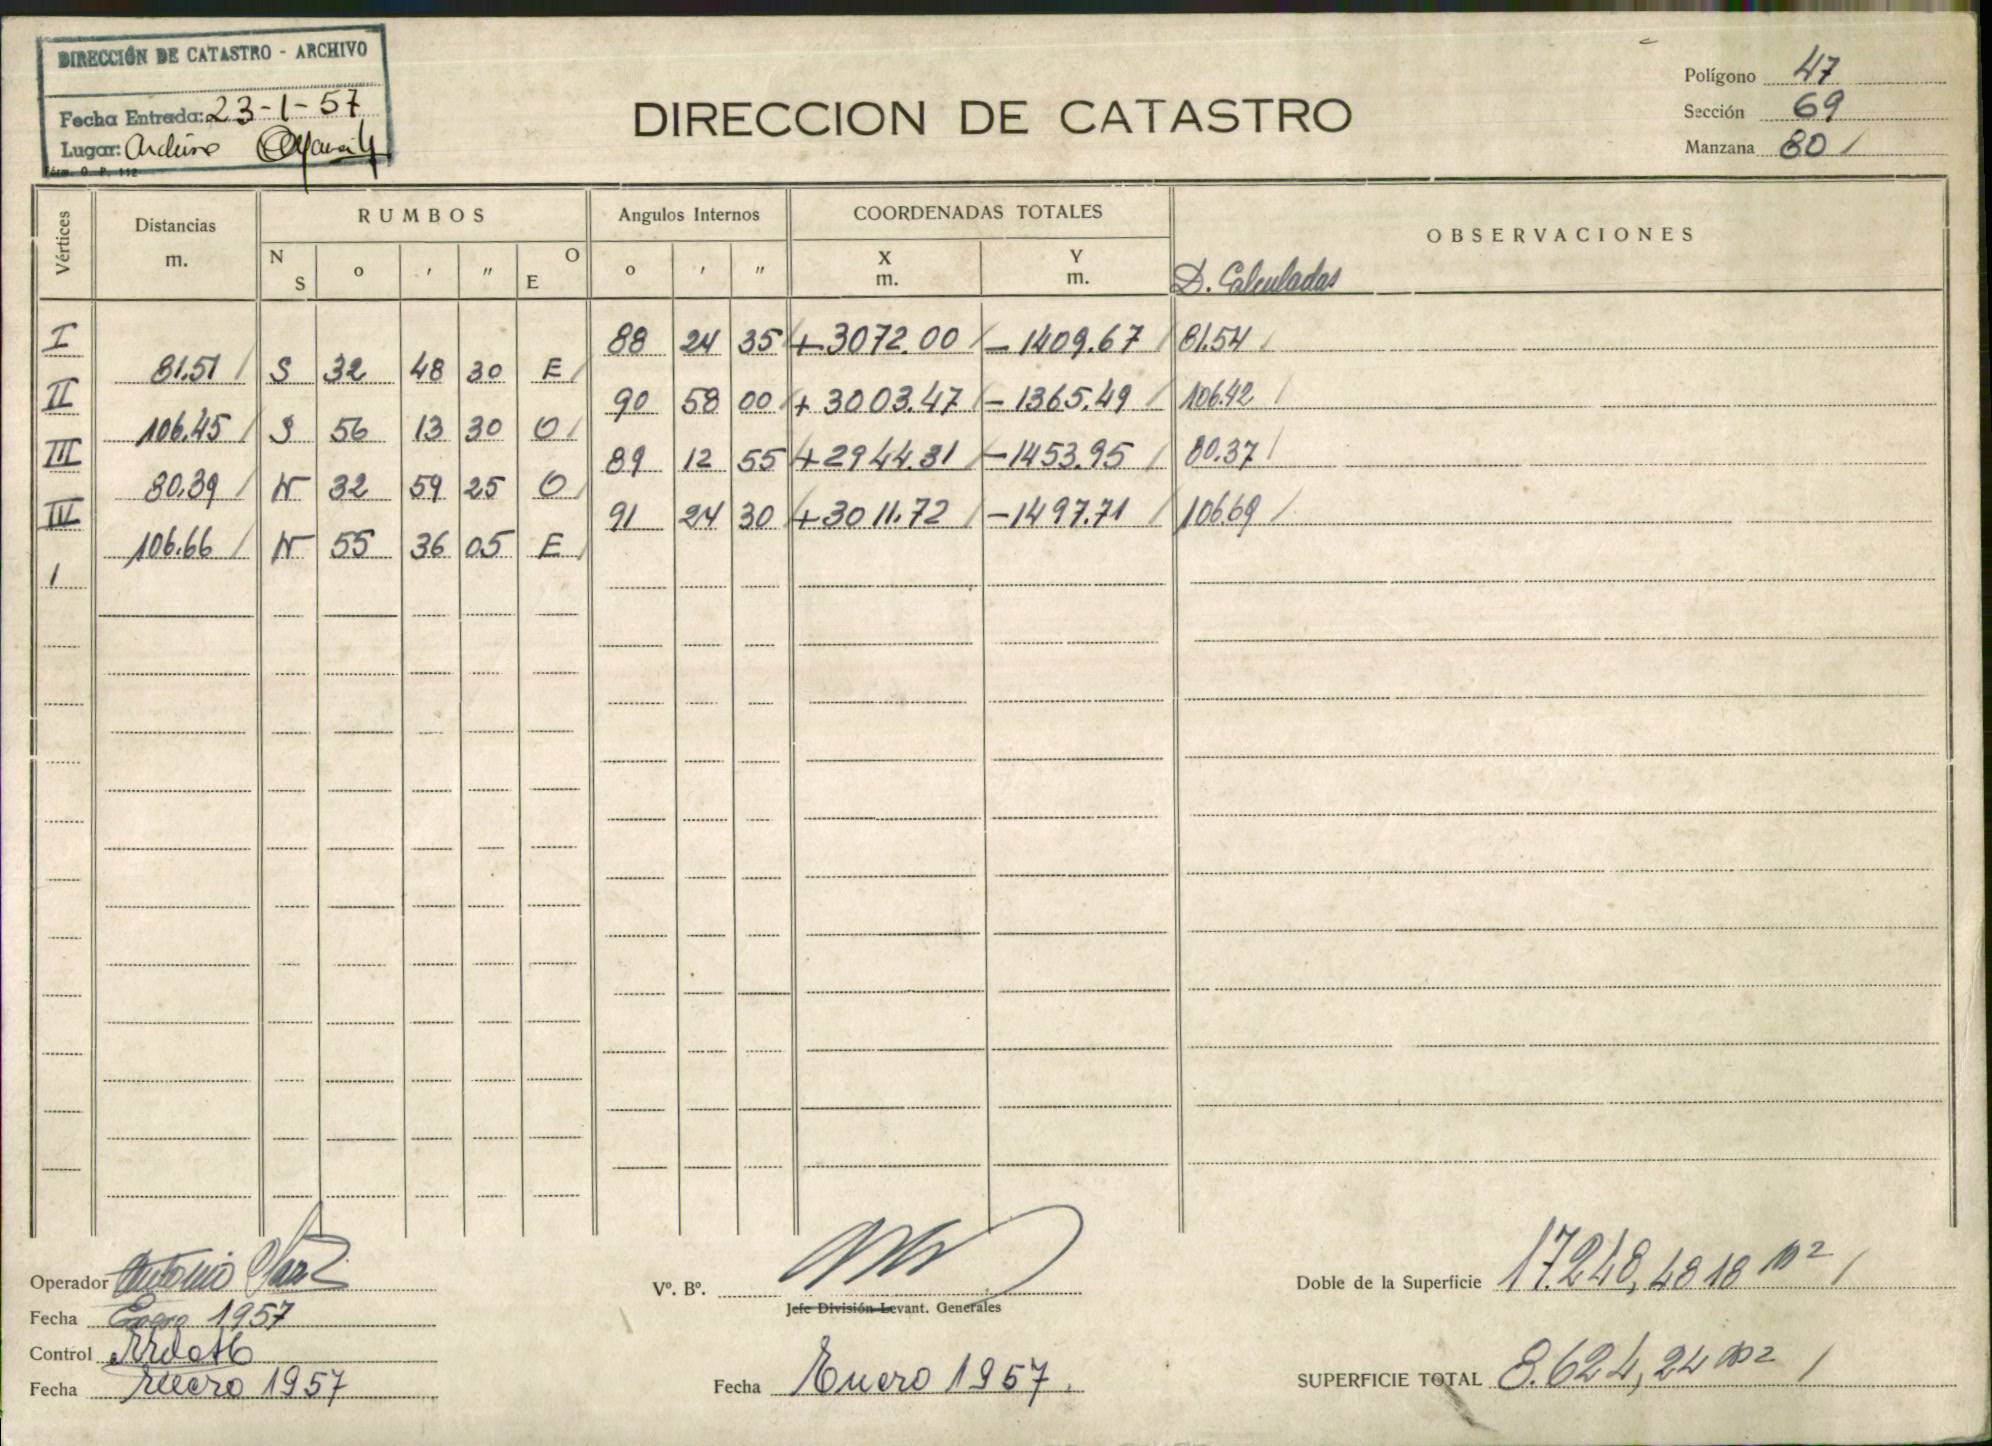 DIRECCIÓN DE CATASTRO - ARCHIVO
Fecha Entrada: 23-1-57
Lugar: Archivo
Fórm. O. P. 112
DIRECCION DE CATASTRO
Polígono 47
Sección 69
Manzana 80 /
Vértices Distancias m. RUMBOS Angulos Internos COORDENADAS TOTALES OBSERVACIONES
N S o ' " O E o ' " X m. Y m. D. Calculadas
I 88 24 35 +3072.00 / -1409.67 / 81.54 /
81.51 / S 32 48 30 E /
II 90 58 00 +3003.47 / -1365.49 / 106.42 /
106.45 / S 56 13 30 O /
III 89 12 55 +2944.31 / -1453.95 / 80.37 /
80.39 / N 32 59 25 O /
IV 91 24 30 +3011.72 / -1497.71 / 106.69 /
106.66 / N 55 36 05 E /
I
Operador Antonio
Fecha Enero 1957
Control
Fecha Enero 1957
Vº. Bº.
Jefe División Levant. Generales
Fecha Enero 1957.
Doble de la Superficie 17.248,4818 m2 /
SUPERFICIE TOTAL 8.624,24 m2 /